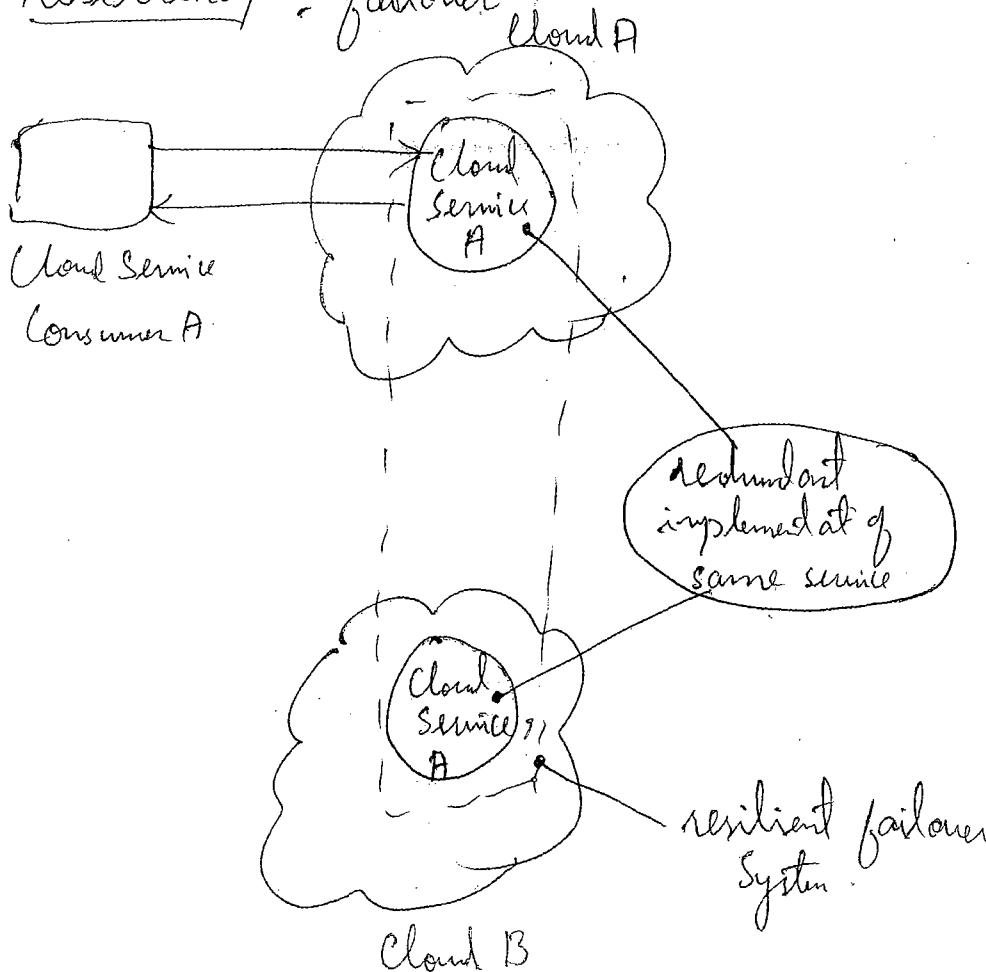 : failover
Cloud A
Cloud
Service
A
Cloud Service
Consumer A
redundant
implementat of
same service
Cloud
Service
A
resilient failover
System.
Cloud B